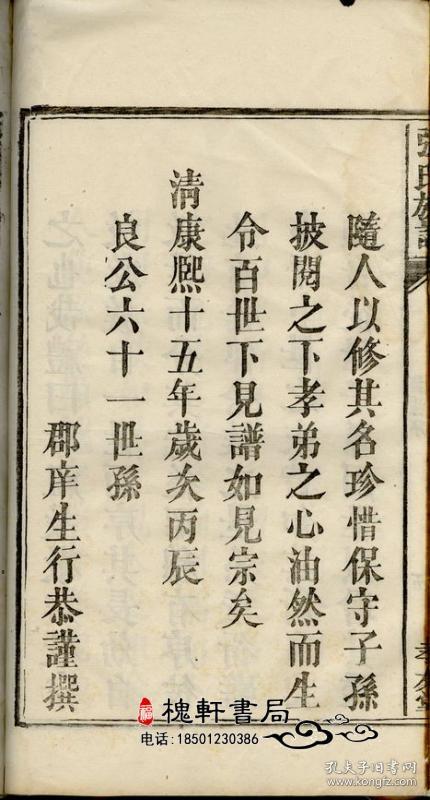 張氏族譜
隨人以修其名珍惜保守子孫
披閱之下孝弟之心油然而生
令百世下見譜如見宗矣
清康熙十五年歲次丙辰
良公六十一世孫
郡庠生行恭謹撰
福
槐軒書局
电话:18501230386
孔夫子旧书网